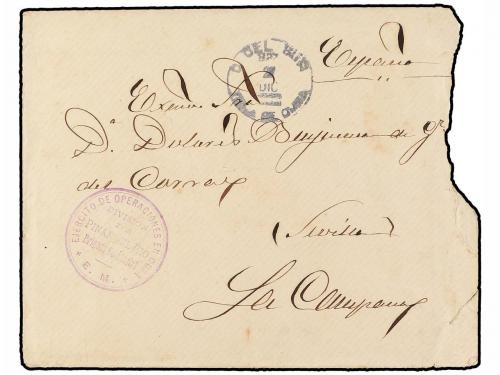 España
Exema Sra
Dª Dolores de
del Corral
(Sevilla)
La Campana
EJERCITO DE OPERACIONES EN
DIVISION
PINAR DEL RIO
E. M.
DEL
DIC
CUBA